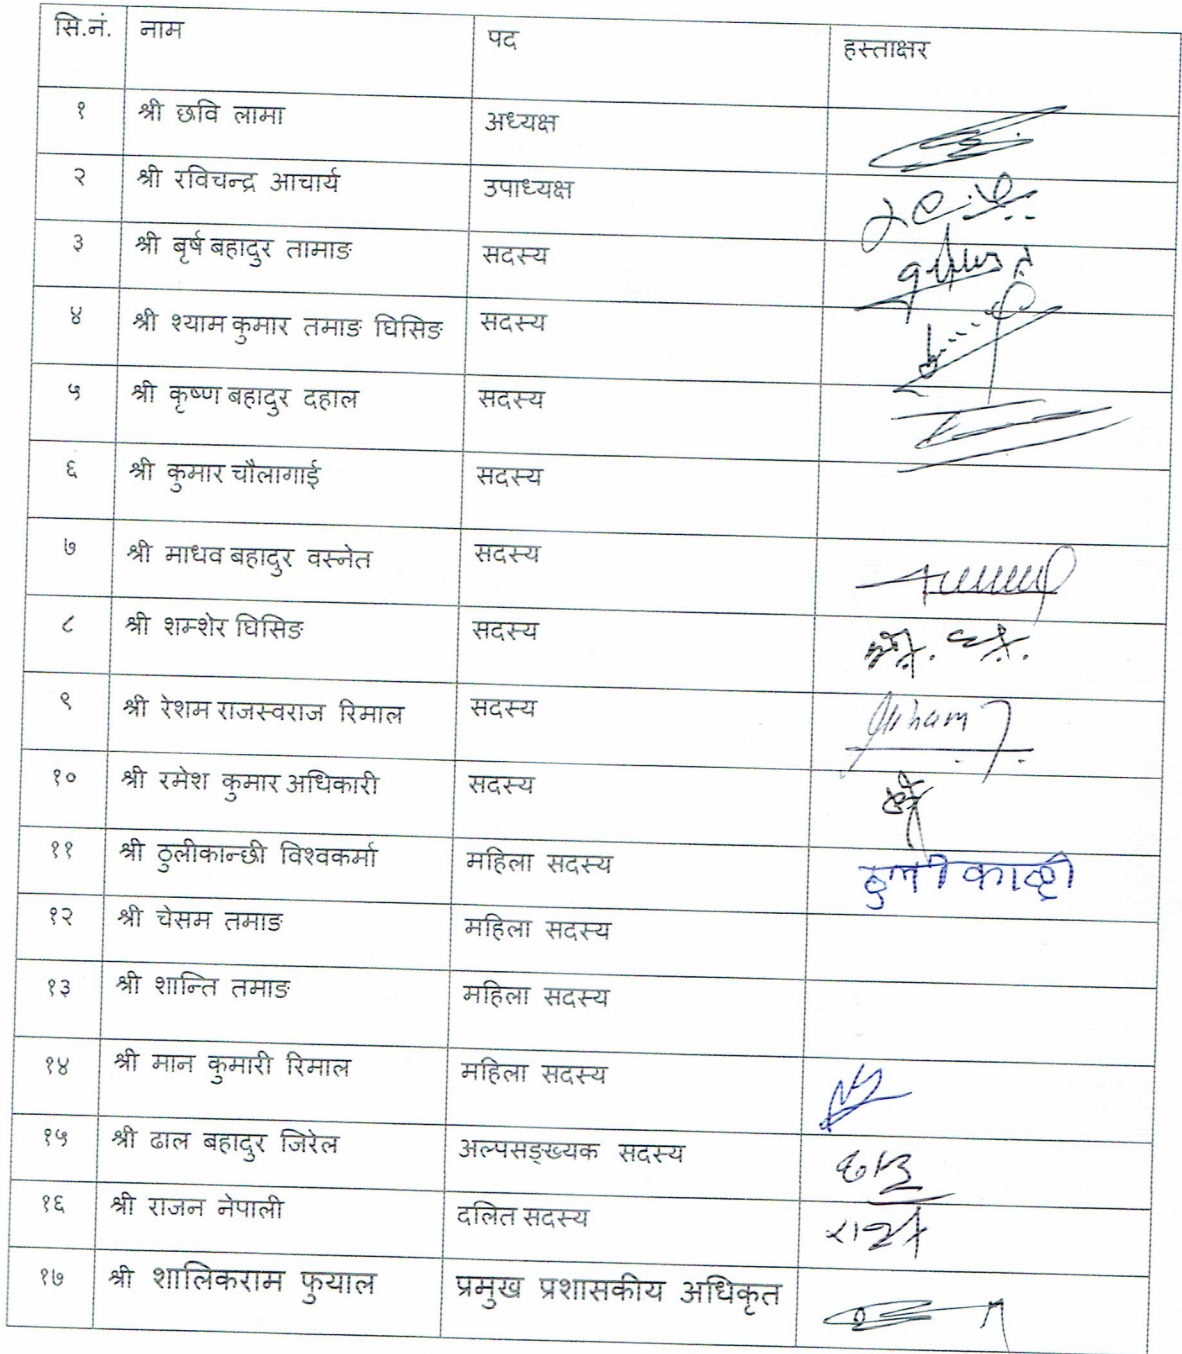 सि.नं. नाम पद हस्ताक्षर
१ श्री छवि लामा अध्यक्ष
२ श्री रविचन्द्र आचार्य उपाध्यक्ष
३ श्री बृर्ष बहादुर तामाङ सदस्य
४ श्री श्याम कुमार तमाङ घिसिङ सदस्य
५ श्री कृष्ण बहादुर दहाल सदस्य
६ श्री कुमार चौलागाई सदस्य
७ श्री माधव बहादुर वस्नेत सदस्य
८ श्री शम्शेर घिसिङ सदस्य
९ श्री रेशम राजस्वराज रिमाल सदस्य
१० श्री रमेश कुमार अधिकारी सदस्य
११ श्री ठुलीकान्छी विश्वकर्मा महिला सदस्य
१२ श्री चेसम तमाङ महिला सदस्य
१३ श्री शान्ति तमाङ महिला सदस्य
१४ श्री मान कुमारी रिमाल महिला सदस्य
१५ श्री ढाल बहादुर जिरेल अल्पसङ्ख्यक सदस्य
१६ श्री राजन नेपाली दलित सदस्य
१७ श्री शालिकराम फुयाल प्रमुख प्रशासकीय अधिकृत